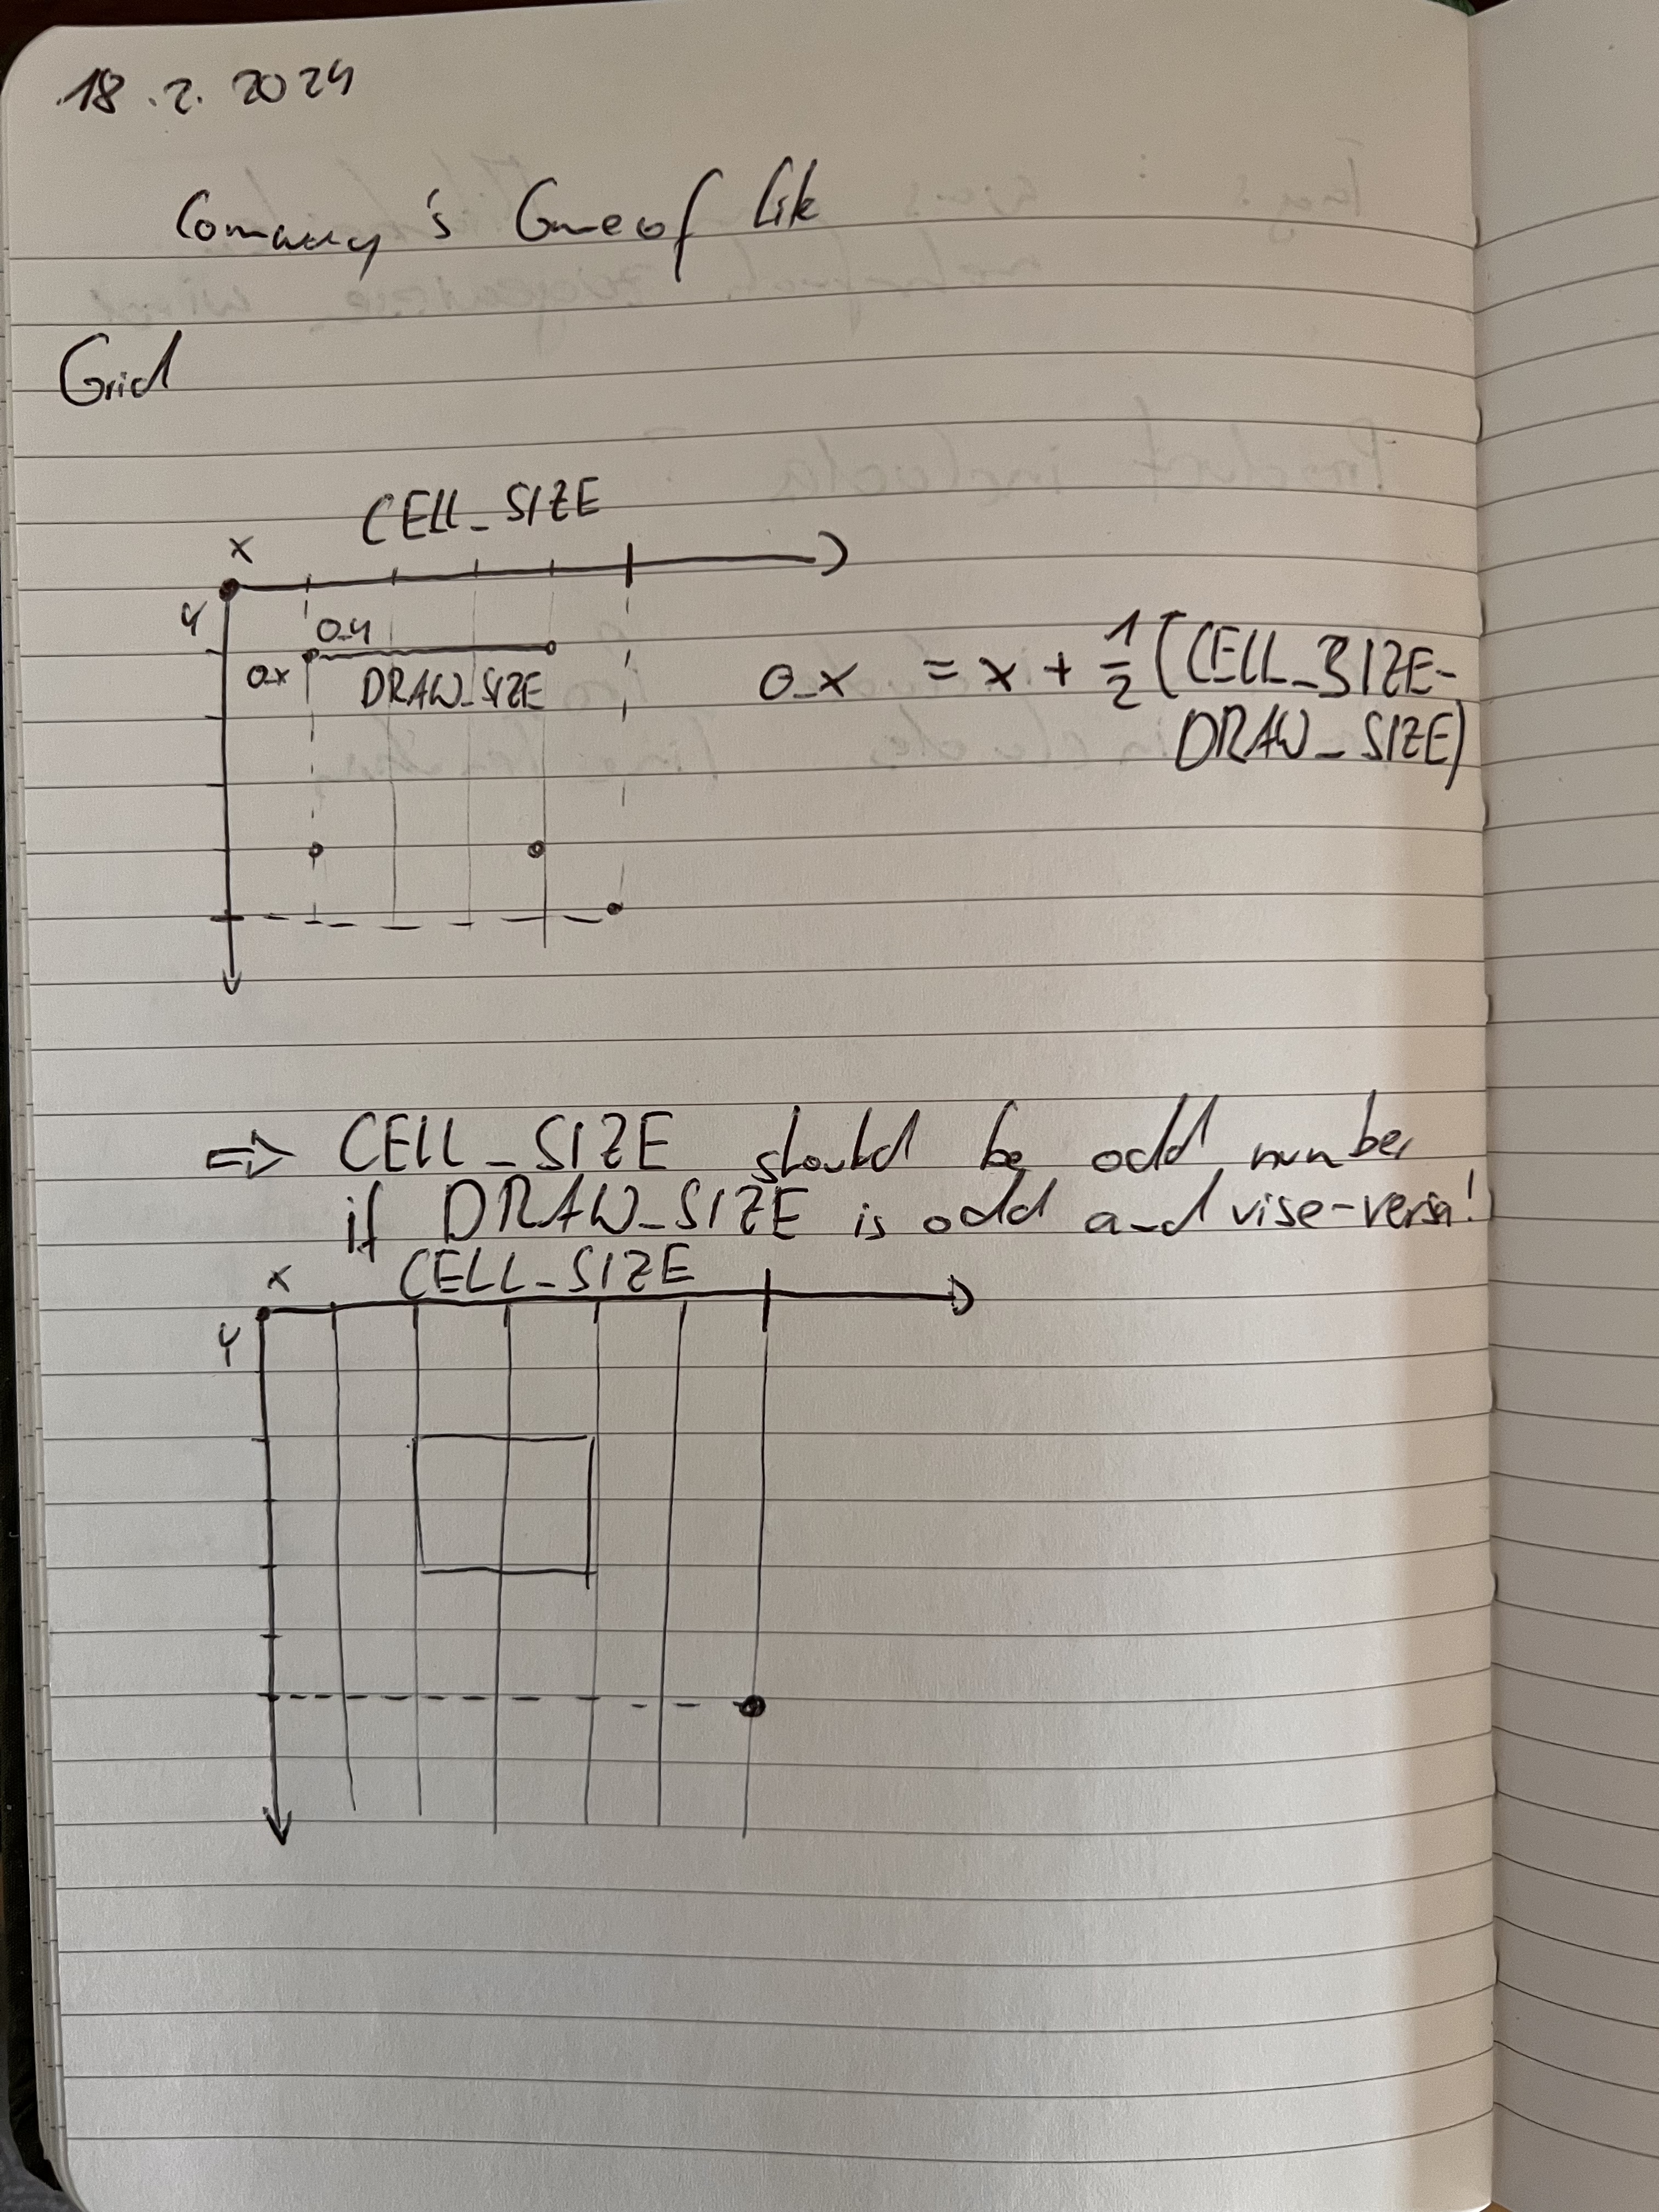 18.2.2024
Conway's Game of Life
Grid
CELL_SIZE
x
y
o_y
o_x
DRAW_SIZE
o_x = x + 1/2 (CELL_SIZE-
DRAW_SIZE)
=> CELL_SIZE should be odd number
if DRAW_SIZE is odd and vise-versa!
x CELL_SIZE
y